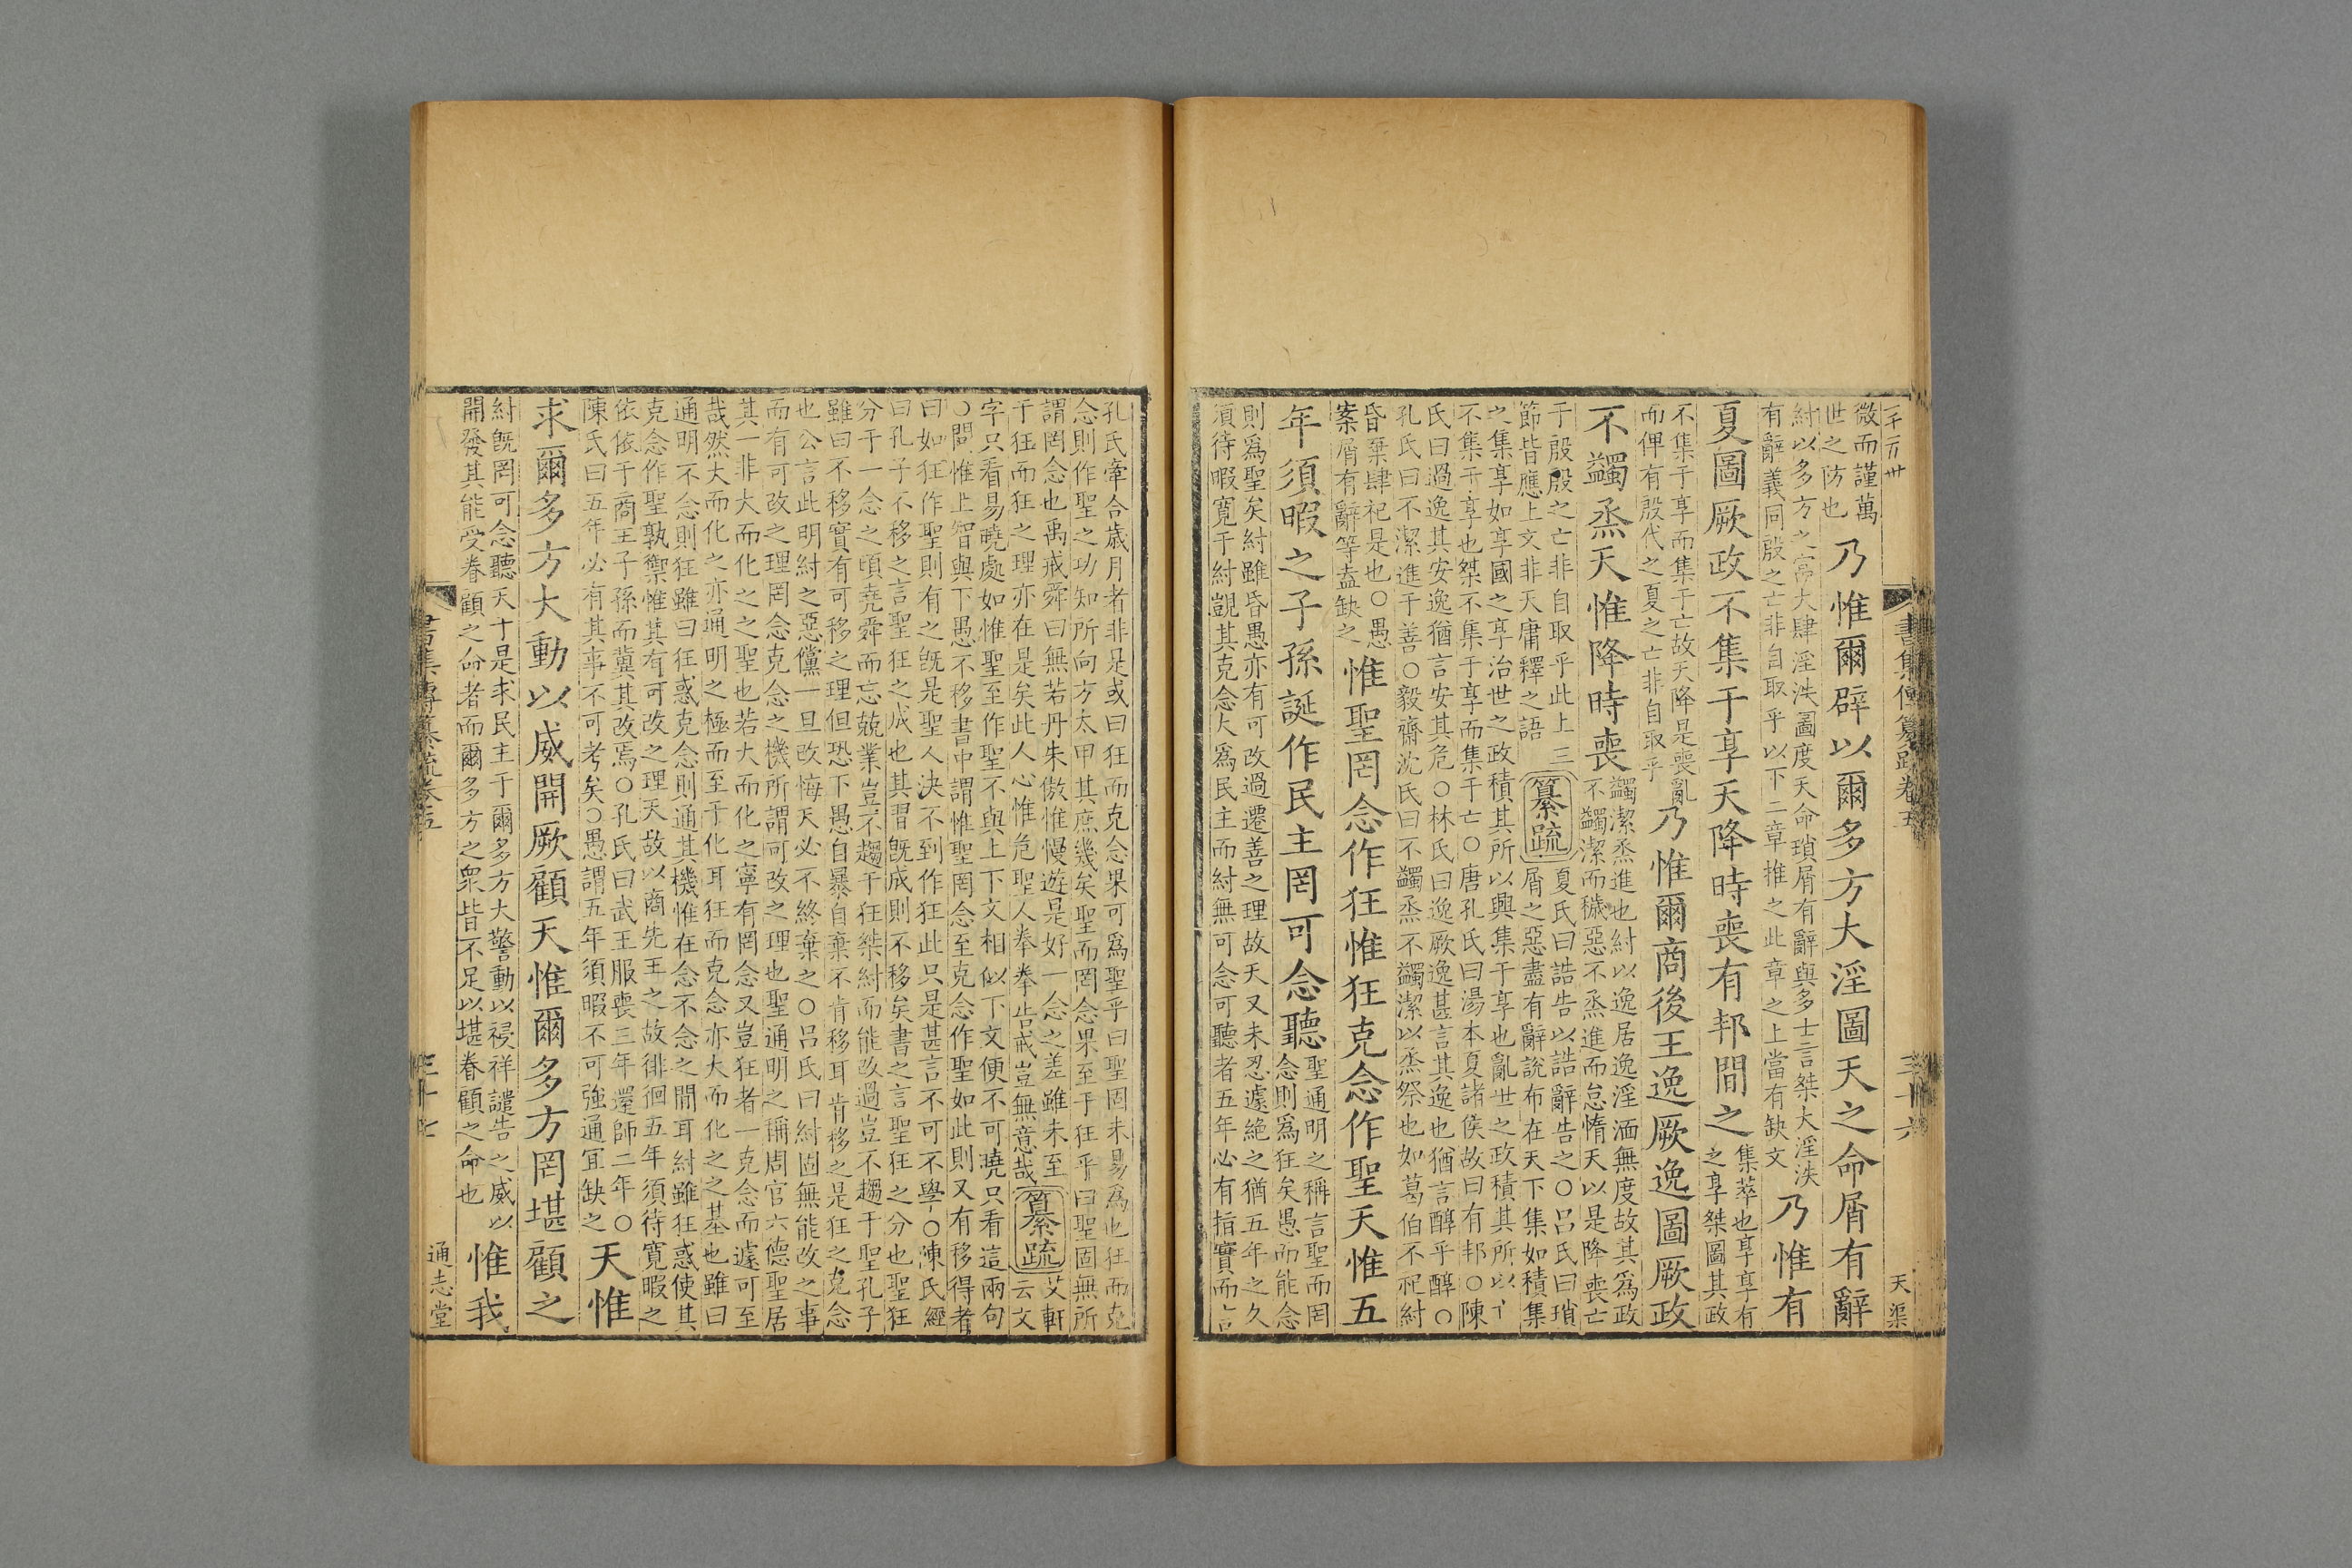 微而謹萬
世之防也
乃惟爾辟以爾多方大淫圖天之命屑有辭
紂以多方之富大肆淫泆圖度天命瑣屑有辭與多士言桀大淫泆
有辭義同殷之亡非自取乎以下二章推之此章之上當有缺文
乃惟有
夏圖厥政不集于享天降時喪有邦間之
集萃也享享有
之享桀圖其政
不集于享而集于亡故天降是喪亂
而俾有殷代之夏之亡非自取乎
乃惟爾商後王逸厥逸圖厥政
不蠲烝天惟降時喪
蠲潔烝進也紂以逸居逸淫湎無度故其爲政
不蠲潔而穢惡不烝進而怠惰天以是降喪亡
于殷殷之亡非自取乎此上三
節皆應上文非天庸釋之語
纂疏
夏氏曰誥告以誥辭告之○呂氏曰瑣
屑之惡盡有辭說布在天下集如積集
之集享如享國之享治世之政積其所以興集于享也亂世之政積其所以亡
不集于享也桀不集于享而集于亡○唐孔氏曰湯本夏諸侯故曰有邦○陳
氏曰過逸其安逸猶言安其危○林氏曰逸厥逸甚言其逸也猶言醇乎醇○
孔氏曰不潔進于善○毅齋沈氏曰不蠲烝不蠲潔以烝祭也如葛伯不祀紂
昏棄肆祀是也○愚
案屑有辭等盍缺之
惟聖罔念作狂惟狂克念作聖天惟五
年須暇之子孫誕作民主罔可念聽
聖通明之稱言聖而罔
念則爲狂矣愚而能念
則爲聖矣紂雖昏愚亦有可改過遷善之理故天又未忍遽絶之猶五年之久
須待暇寛于紂覬其克念大爲民主而紂無可念可聽者五年必有指實而言
孔氏牽合歲月者非是或曰狂而克念果可爲聖乎曰聖固未易爲也狂而克
念則作聖之功知所向方太甲其庶幾矣聖而罔念果至于狂乎曰聖固無所
謂罔念也禹戒舜曰無若丹朱傲惟慢遊是好一念之差雖未至
于狂而狂之理亦在是矣此人心惟危聖人拳拳告戒豈無意哉
纂疏
艾軒
云文
字只看易曉處如惟聖至作聖不與上下文相似下文便不可曉只看這兩句
○問惟上智與下愚不移書中謂惟聖罔念至克念作聖如此則又有移得者
曰如狂作聖則有之旣是聖人決不到作狂此只是甚言不可不學○陳氏經
曰孔子不移之言聖狂之成也其習旣成則不移矣書之言聖狂之分也聖狂
分于一念之頃堯舜而忘兢業豈不趨于狂桀紂而能改過豈不趨于聖孔子
雖曰不移實有可移之理但恐下愚自暴自棄不肯移耳肯移之是狂之克念
也公言此明紂之惡儻一旦改悔天必不終棄之○呂氏曰紂固無能改之事
而有可改之理罔念克念之機所謂可改之理也聖通明之稱周官六德聖居
其一非大而化之之聖也若大而化之寧有罔念又豈狂者一克念而遽可至
哉然大而化之亦通明之極而至于化耳狂而克念亦大而化之之基也雖曰
通明不念則狂雖曰狂惑克念則通其機惟在念不念之間耳紂雖狂惑使其
克念作聖孰禦惟其有可改之理天故以商先王之故徘徊五年須待寛暇之
依依于商王子孫而冀其改焉○孔氏曰武王服喪三年還師二年○
陳氏曰五年必有其事不可考矣○愚謂五年須暇不可強通宜缺之
天惟
求爾多方大動以威開厥顧天惟爾多方罔堪顧之
紂旣罔可念聽天于是求民主于爾多方大警動以祲祥譴告之威以
開發其能受眷顧之命者而爾多方之衆皆不足以堪眷顧之命也
惟我
書集傳纂疏卷五
三十六
天渠
書集傳纂疏卷五
三十七
通志堂